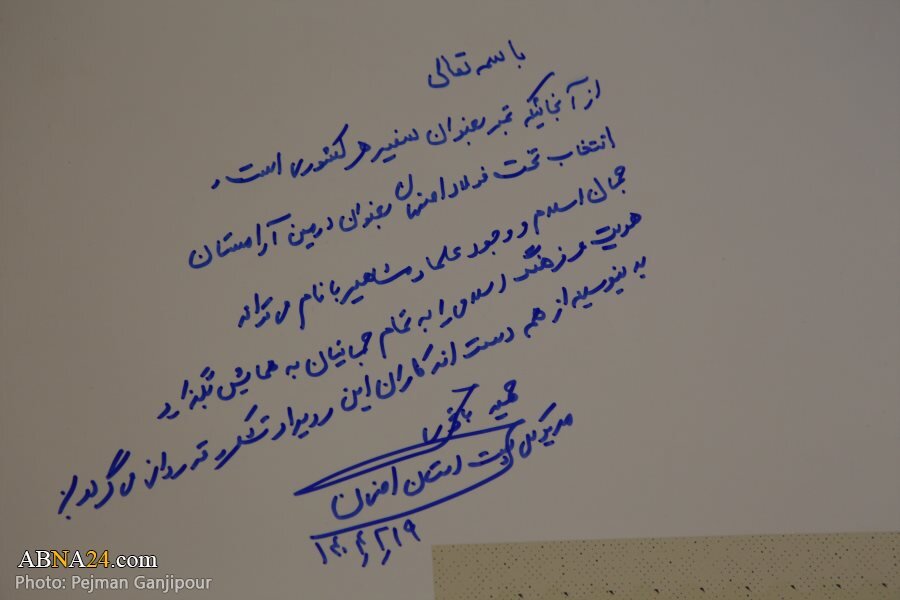 باسمه تعالی
از آنجائیکه تمبر بعنوان سفیر هر کشوری است،
انتخاب تخت فولاد اصفهان بعنوان دومین آرامستان
جهان اسلام و وجود علما و مشاهیر بانام می‌تواند
هویت و فرهنگ اسلامی را به تمام جهانیان به نمایش بگذارد
بدینوسیله از همه دست اندکاران این رویداد تشکر و قدردانی می‌گردد.
حمید باقری
مدیرکل پست استان اصفهان
ABNA24.com
Photo: Pejman Ganjipour